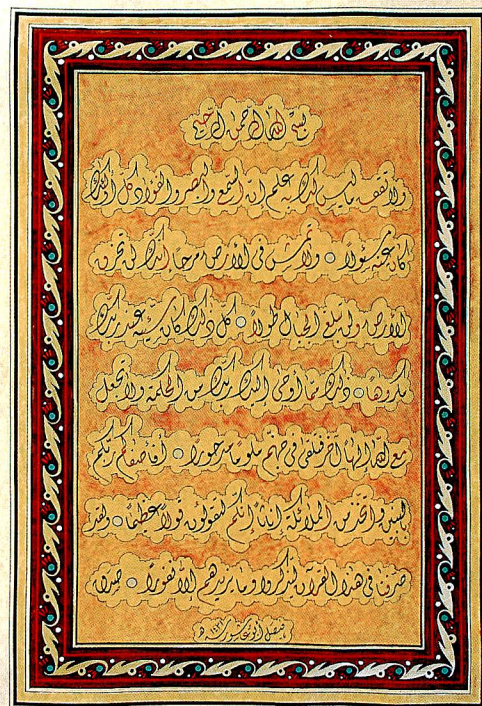 بسم الله الرحمن الرحيم
ولا تقف ما ليس لك به علم ان السمع والبصر والفؤاد كل أولئك
كان عنه مسئولا ولا تمش في الأرض مرحا إنك لن تخرق
الأرض ولن تبلغ الجبال طولا كل ذلك كان سيئه عند ربك
مكروها ذلك مما أوحى إليك ربك من الحكمة ولا تجعل
مع الله إلها آخر فتلقى في جهنم ملوما مدحورا أفأصفاكم ربكم
بالبنين واتخذ من الملائكة إناثا إنكم لتقولون قولا عظيما ولقد
صرفنا في هذا القرآن ليذكروا وما يزيدهم إلا نفورا صدق الله